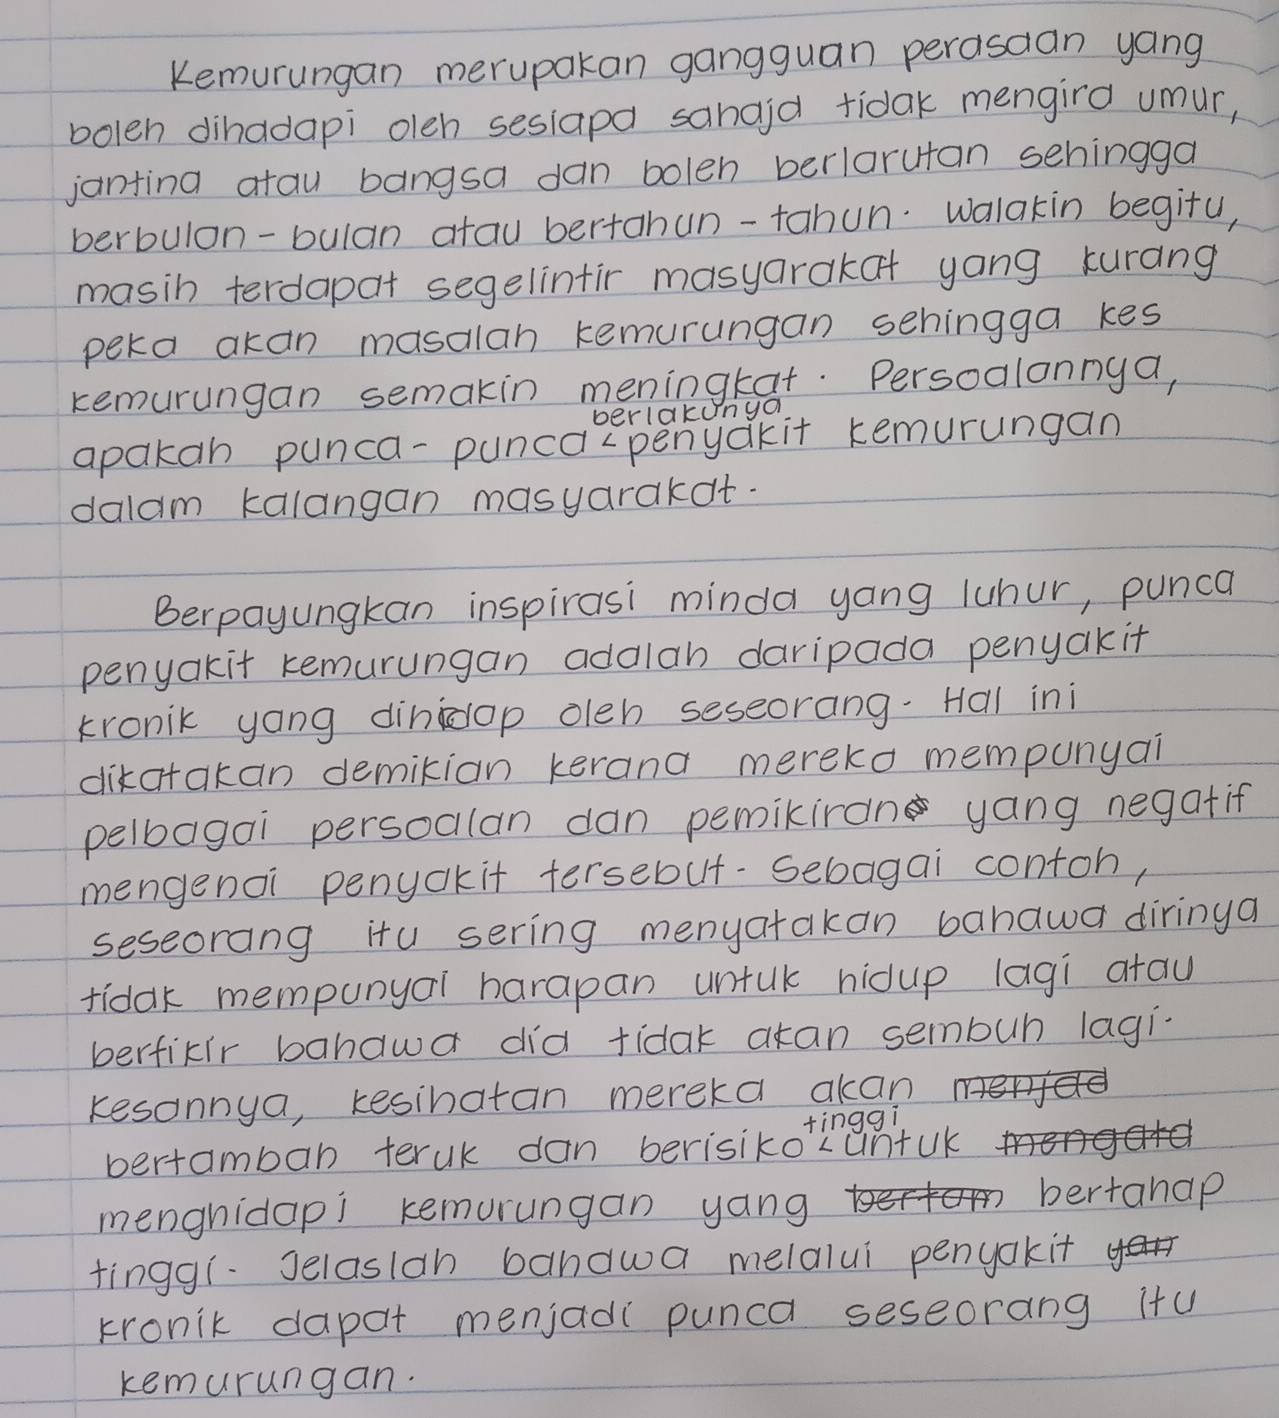 Kemurungan merupakan gangguan perasaan yang
boleh dihadapi oleh sesiapa sahaja tidak mengira umur,
jantina atau bangsa dan boleh berlarutan sehingga
berbulan-bulan atau bertahun-tahun. Walakin begitu,
masih terdapat segelintir masyarakat yang kurang
peka akan masalah kemurungan sehingga kes
kemurungan semakin meningkat. Persoalannya,
berlakunya
apakah punca-punca penyakit kemurungan
dalam kalangan masyarakat.
Berpayungkan inspirasi minda yang luhur, punca
penyakit kemurungan adalah daripada penyakit
kronik yang dihidap oleh seseorang. Hal ini
dikatakan demikian kerana mereka mempunyai
pelbagai persoalan dan pemikiran yang negatif
mengenai penyakit tersebut. Sebagai contoh,
seseorang itu sering menyatakan bahawa dirinya
tidak mempunyai harapan untuk hidup lagi atau
berfikir bahawa dia tidak akan sembuh lagi.
Kesannya, kesihatan mereka akan menjad
tinggi
bertambah teruk dan berisiko untuk mengata
menghidapi kemurungan yang bertam bertahap
tinggi. Jelaslah bahawa melalui penyakit yan
kronik dapat menjadi punca seseorang itu
kemurungan.